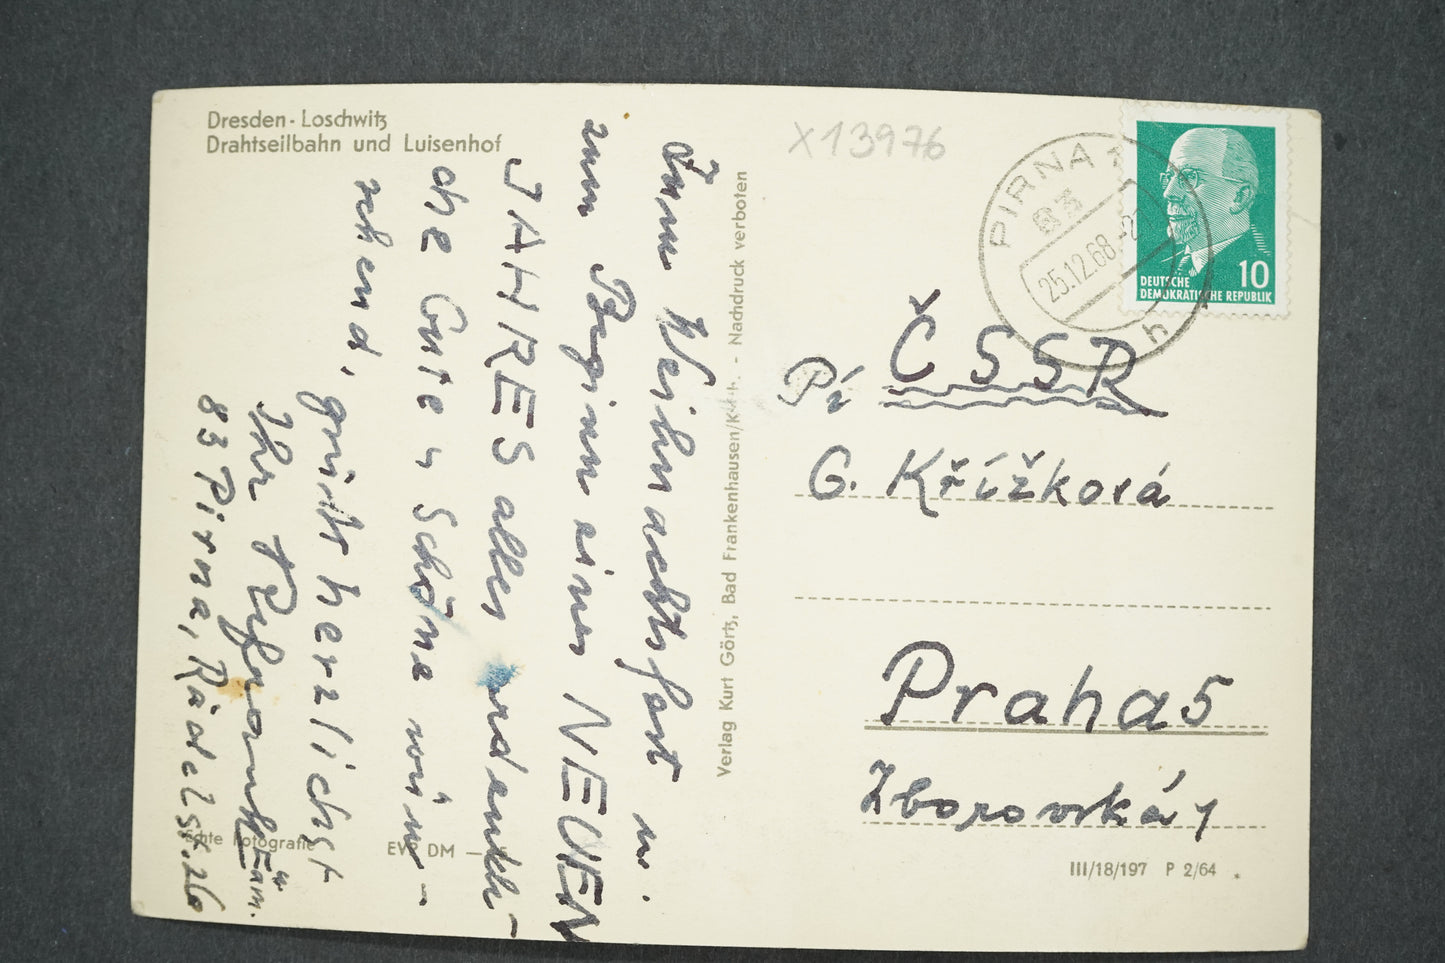 Dresden - Loschwitz
Drahtseilbahn und Luisenhof
Zum Weihnachtsfest u.
zum Beginn eines NEUEN
JAHRES alles erdenkli-
che Gute u Schöne wün-
schend, grüßt herzlichst
Ihr
83 Pirna, Rädelstr. 26
Echte Fotografie
EVP DM —
Verlag Kurt Görtz, Bad Frankenhausen/Kyffh. - Nachdruck verboten
X13976
PIRNA 1
25.12.68
h
10
DEUTSCHE
DEMOKRATISCHE REPUBLIK
ČSSR
Pí
G. Křížková
Praha 5
Zborovská 1
III/18/197 P 2/64